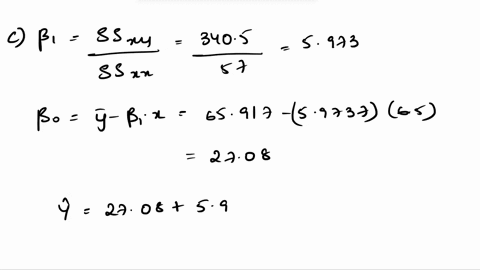 c) β₁ = SSxy / SSxx = 340.5 / 57 = 5.973
β₀ = ȳ - β₁·x = 65.917 - (5.9737)(65)
= 27.08
ŷ = 27.08 + 5.9